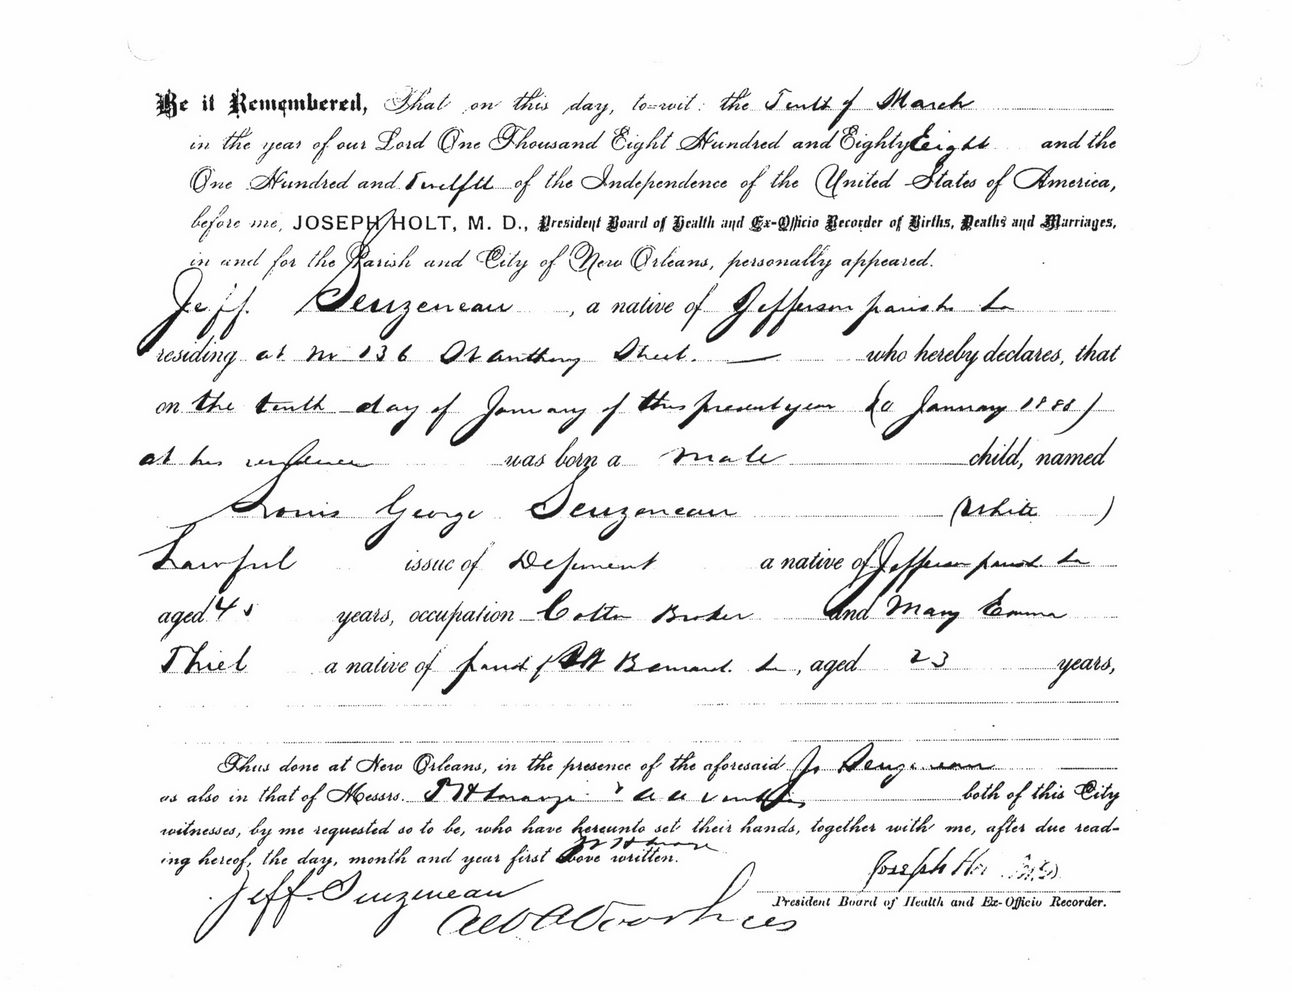 Be it Remembered, That on this day, to=wit: the Tenth of March
in the year of our Lord One Thousand Eight Hundred and Eighty Eight and the
One Hundred and Twelfth of the Independence of the United States of America,
before me, JOSEPH HOLT, M. D., President Board of Health and Ex-Officio Recorder of Births, Deaths and Marriages,
in and for the Parish and City of New Orleans, personally appeared.
Jeff. Senzeneau, a native of Jefferson parish La
residing at No 136 St Anthony Street. — who hereby declares, that
on the tenth day of January of this present year (10 January 1888)
at his residence was born a male child, named
Louis George Senzeneau (White)
Lawful issue of Deponent a native of Jefferson parish La
aged years, occupation Cotton Broker and Mary Emma
Thiel a native of parish of St Bernard. La, aged 23 years,
Thus done at New Orleans, in the presence of the aforesaid J. Senzeneau
as also in that of Messrs. & both of this City
witnesses, by me requested so to be, who have hereunto set their hands, together with me, after due read-
ing hereof, the day, month and year first above written.
Joseph Holt M.D.
Jeff. Senzeneau
Voorhies
President Board of Health and Ex-Officio Recorder.